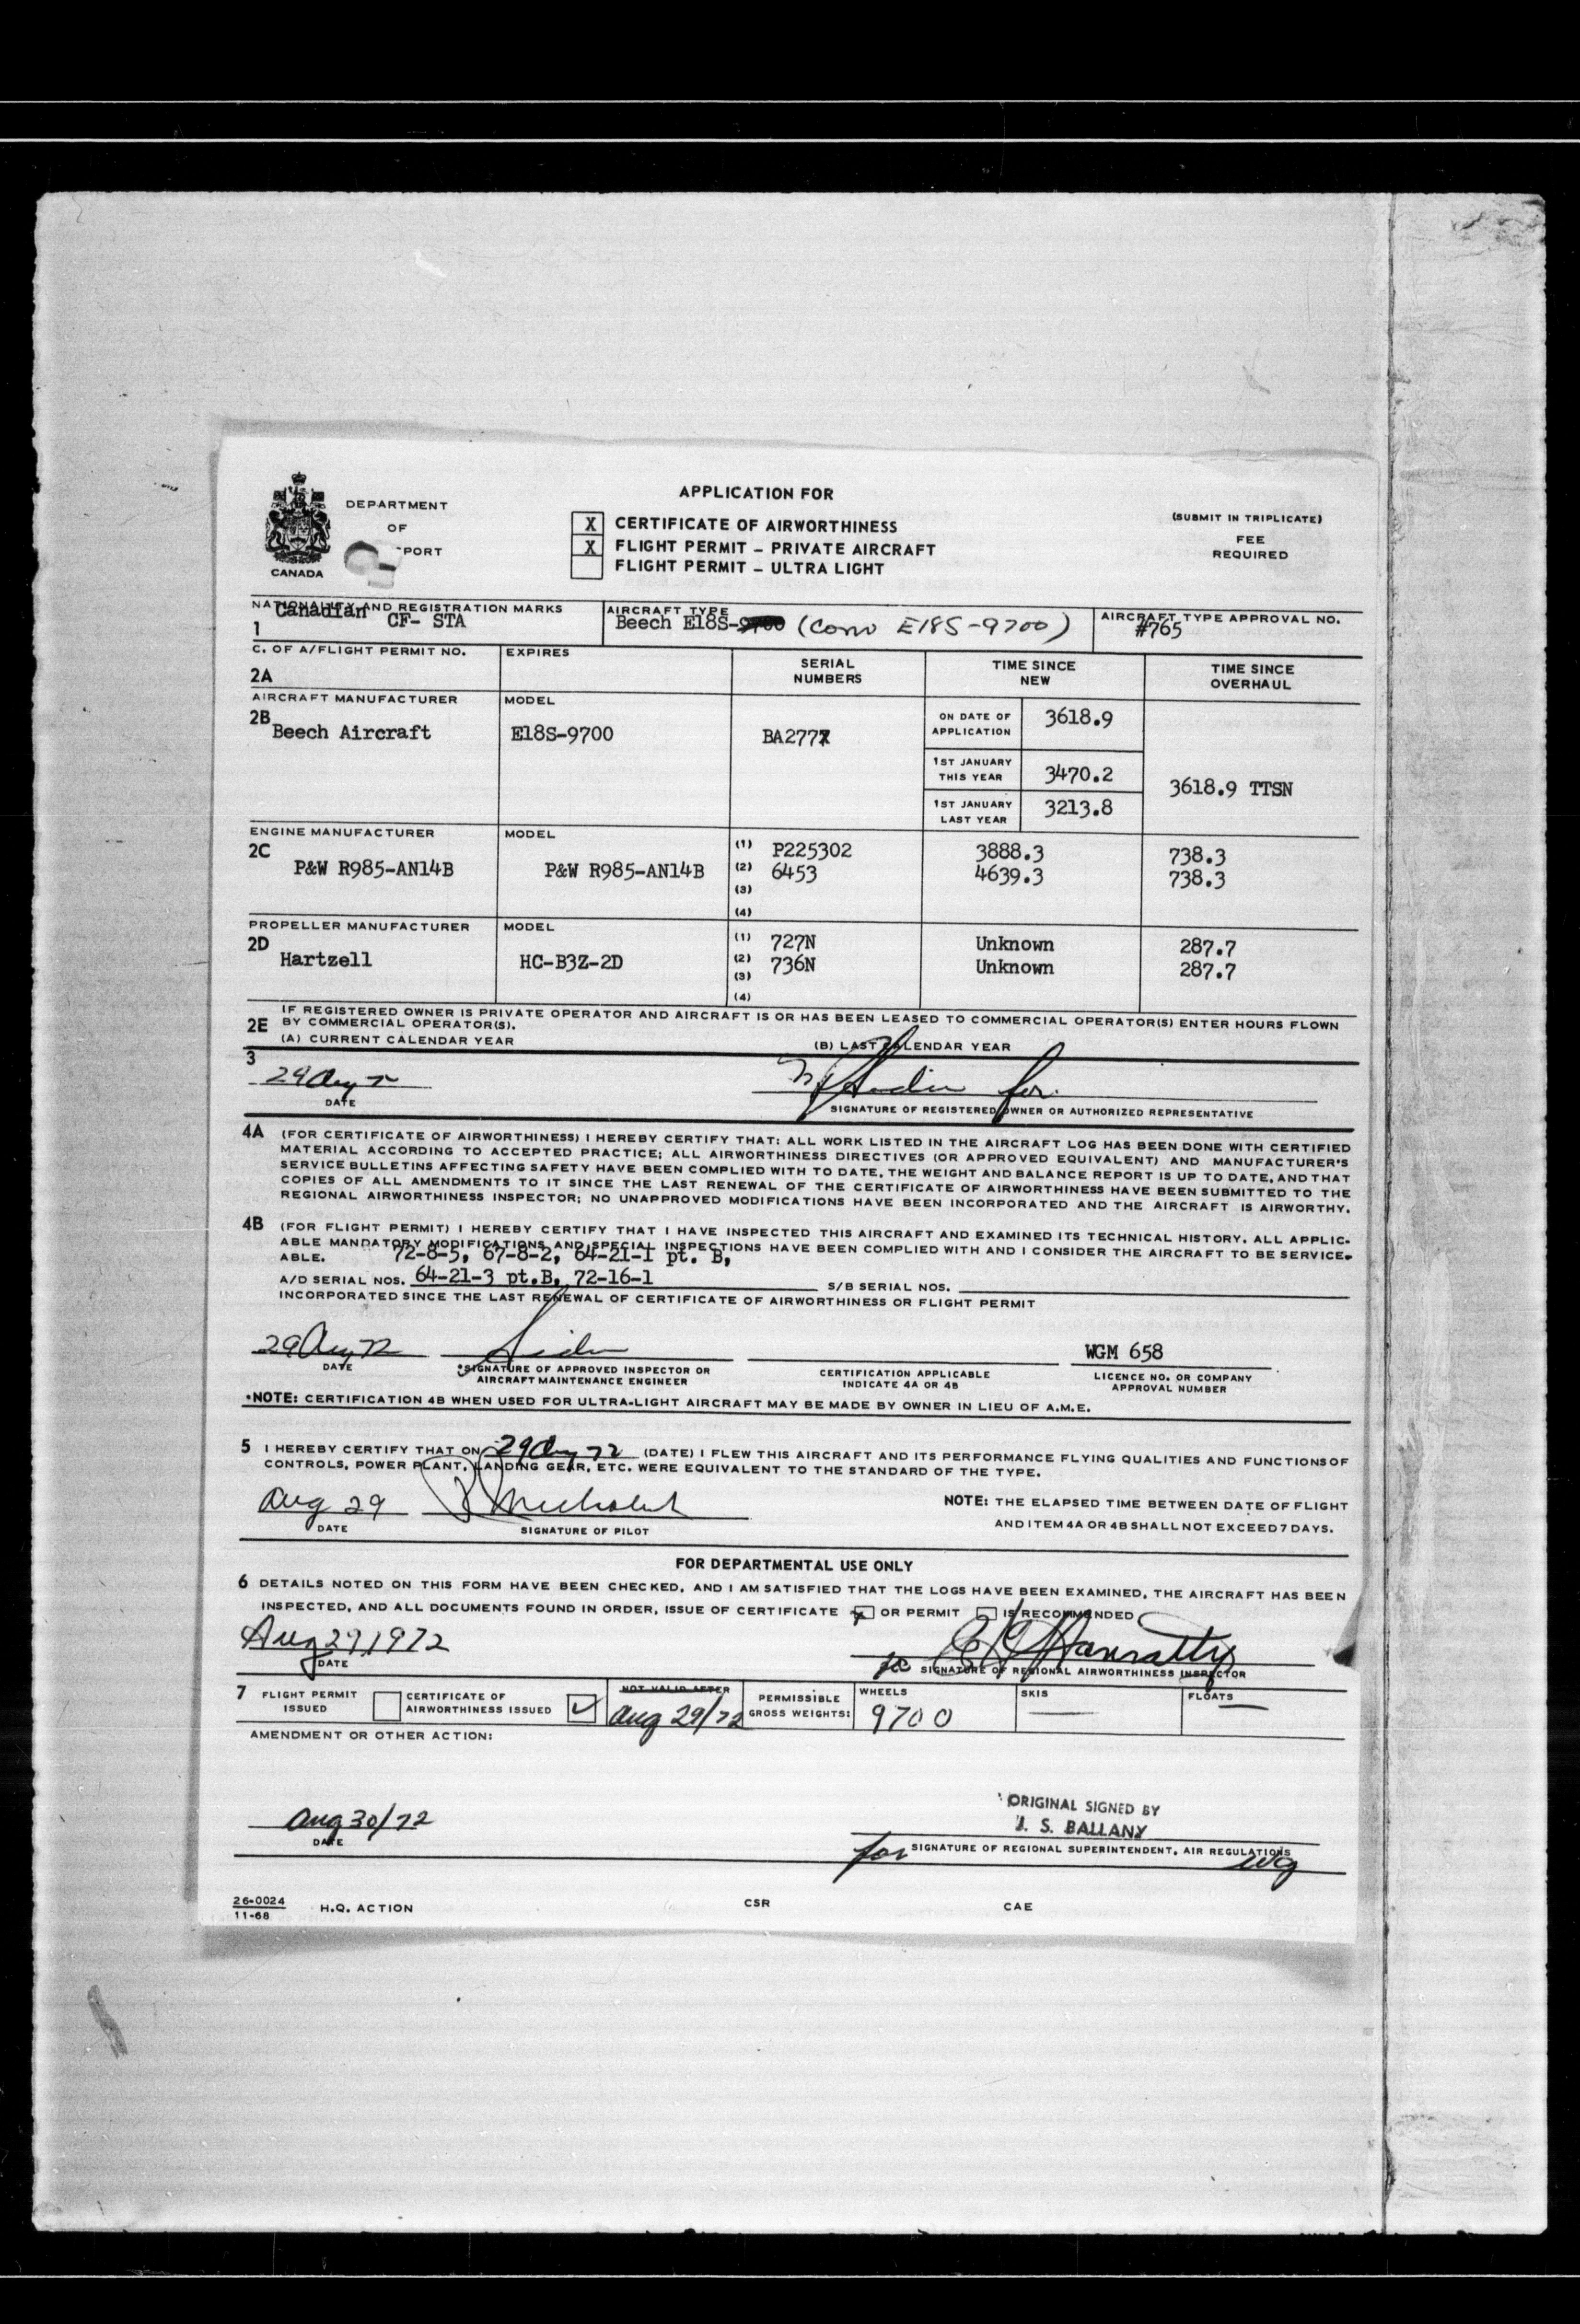 APPLICATION FOR
DEPARTMENT
OF
PORT
CANADA
X CERTIFICATE OF AIRWORTHINESS
X FLIGHT PERMIT – PRIVATE AIRCRAFT
FLIGHT PERMIT – ULTRA LIGHT
(SUBMIT IN TRIPLICATE)
FEE
REQUIRED
NATIONALITY AND REGISTRATION MARKS
1 Canadian CF- STA
AIRCRAFT TYPE
Beech E18S-9700 (Conv E18S-9700)
AIRCRAFT TYPE APPROVAL NO.
#765
C. OF A/FLIGHT PERMIT NO.
2A
EXPIRES
SERIAL
NUMBERS
TIME SINCE
NEW
TIME SINCE
OVERHAUL
AIRCRAFT MANUFACTURER
2B Beech Aircraft
MODEL
E18S-9700
BA277
ON DATE OF
APPLICATION 3618.9
1ST JANUARY
THIS YEAR 3470.2
1ST JANUARY
LAST YEAR 3213.8
3618.9 TTSN
ENGINE MANUFACTURER
2C P&W R985-AN14B
MODEL
P&W R985-AN14B
(1) P225302 3888.3 738.3
(2) 6453 4639.3 738.3
(3)
(4)
PROPELLER MANUFACTURER
2D Hartzell
MODEL
HC-B3Z-2D
(1) 727N Unknown 287.7
(2) 736N Unknown 287.7
(3)
(4)
2E IF REGISTERED OWNER IS PRIVATE OPERATOR AND AIRCRAFT IS OR HAS BEEN LEASED TO COMMERCIAL OPERATOR(S) ENTER HOURS FLOWN
BY COMMERCIAL OPERATOR(S).
(A) CURRENT CALENDAR YEAR (B) LAST CALENDAR YEAR
3
29 Aug 72 for
DATE SIGNATURE OF REGISTERED OWNER OR AUTHORIZED REPRESENTATIVE
4A (FOR CERTIFICATE OF AIRWORTHINESS) I HEREBY CERTIFY THAT: ALL WORK LISTED IN THE AIRCRAFT LOG HAS BEEN DONE WITH CERTIFIED
MATERIAL ACCORDING TO ACCEPTED PRACTICE; ALL AIRWORTHINESS DIRECTIVES (OR APPROVED EQUIVALENT) AND MANUFACTURER'S
SERVICE BULLETINS AFFECTING SAFETY HAVE BEEN COMPLIED WITH TO DATE, THE WEIGHT AND BALANCE REPORT IS UP TO DATE, AND THAT
COPIES OF ALL AMENDMENTS TO IT SINCE THE LAST RENEWAL OF THE CERTIFICATE OF AIRWORTHINESS HAVE BEEN SUBMITTED TO THE
REGIONAL AIRWORTHINESS INSPECTOR; NO UNAPPROVED MODIFICATIONS HAVE BEEN INCORPORATED AND THE AIRCRAFT IS AIRWORTHY.
4B (FOR FLIGHT PERMIT) I HEREBY CERTIFY THAT I HAVE INSPECTED THIS AIRCRAFT AND EXAMINED ITS TECHNICAL HISTORY. ALL APPLIC-
ABLE MANDATORY MODIFICATIONS AND SPECIAL INSPECTIONS HAVE BEEN COMPLIED WITH AND I CONSIDER THE AIRCRAFT TO BE SERVICE-
ABLE. 72-8-5, 67-8-2, 64-21-1 pt. B,
A/D SERIAL NOS. 64-21-3 pt.B, 72-16-1 S/B SERIAL NOS.
INCORPORATED SINCE THE LAST RENEWAL OF CERTIFICATE OF AIRWORTHINESS OR FLIGHT PERMIT
29 Aug 72 WGM 658
DATE
*SIGNATURE OF APPROVED INSPECTOR OR
AIRCRAFT MAINTENANCE ENGINEER
CERTIFICATION APPLICABLE
INDICATE 4A OR 4B
LICENCE NO. OR COMPANY
APPROVAL NUMBER
*NOTE: CERTIFICATION 4B WHEN USED FOR ULTRA-LIGHT AIRCRAFT MAY BE MADE BY OWNER IN LIEU OF A.M.E.
5 I HEREBY CERTIFY THAT ON 29 Aug 72 (DATE) I FLEW THIS AIRCRAFT AND ITS PERFORMANCE FLYING QUALITIES AND FUNCTIONS OF
CONTROLS, POWER PLANT, LANDING GEAR, ETC. WERE EQUIVALENT TO THE STANDARD OF THE TYPE.
Aug 29
DATE SIGNATURE OF PILOT
NOTE: THE ELAPSED TIME BETWEEN DATE OF FLIGHT
AND ITEM 4A OR 4B SHALL NOT EXCEED 7 DAYS.
FOR DEPARTMENTAL USE ONLY
6 DETAILS NOTED ON THIS FORM HAVE BEEN CHECKED, AND I AM SATISFIED THAT THE LOGS HAVE BEEN EXAMINED, THE AIRCRAFT HAS BEEN
INSPECTED, AND ALL DOCUMENTS FOUND IN ORDER, ISSUE OF CERTIFICATE OR PERMIT IS RECOMMENDED
Aug 29, 1972 Hanratty
DATE SIGNATURE OF REGIONAL AIRWORTHINESS INSPECTOR
7 FLIGHT PERMIT
ISSUED
CERTIFICATE OF
AIRWORTHINESS ISSUED
NOT VALID AFTER
Aug 29/72
PERMISSIBLE
GROSS WEIGHTS:
WHEELS
9700
SKIS
FLOATS
AMENDMENT OR OTHER ACTION:
ORIGINAL SIGNED BY
J. S. BALLANY
Aug 30/72
DATE
for SIGNATURE OF REGIONAL SUPERINTENDENT, AIR REGULATIONS
26-0024
11-68
H.Q. ACTION CSR CAE